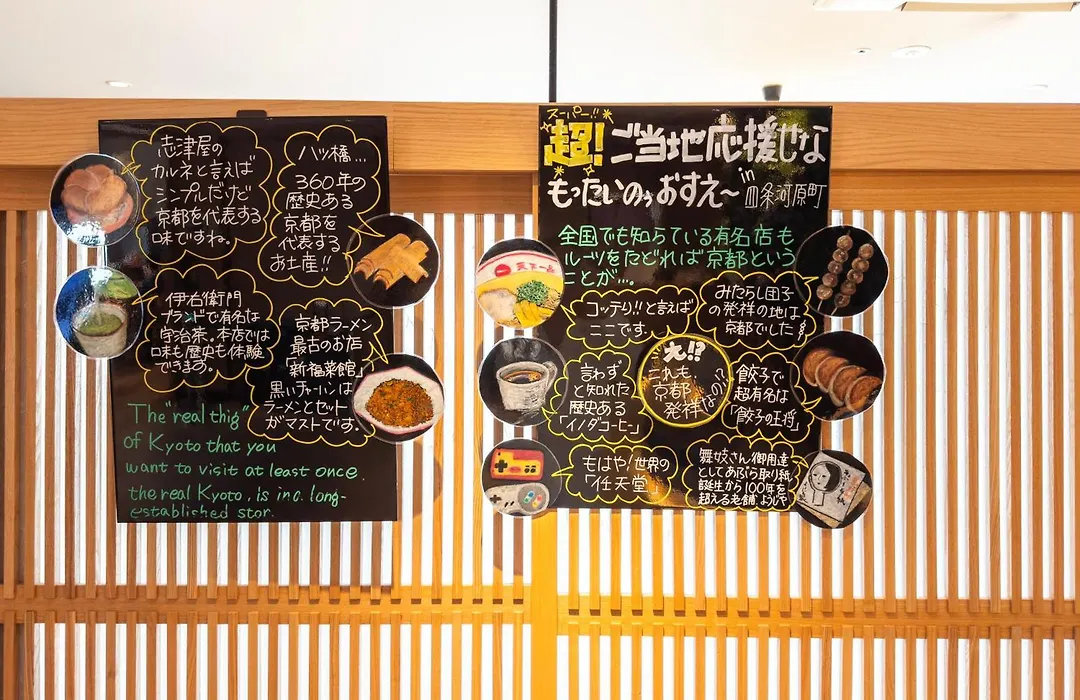 志津屋の
カルネと言えば
シンプルだけど
京都を代表する
味ですね。
八ッ橋…
360年の
歴史ある
京都を
代表する
お土産!!
伊右衛門
ブランドで有名な
宇治茶。本店では
味も歴史も体験
できます。
京都ラーメン
最古のお店
「新福菜館」
黒いチャーハンは
ラーメンとセット
がマストです。
The "real thig"
of Kyoto that you
want to visit at least once.
the real Kyoto, is in a long-
established stor.
スーパー!!
超!ご当地応援せな
もったいのぅおすえ〜in四条河原町
全国でも知らている有名店も
ルーツをたどれば京都という
ことが…。
天下一品
コッテリ!!と言えば
ここです。
みたらし団子
の発祥の地は
京都でした
言わず
と知れた
歴史ある
「イノダコーヒー」
え!?
これも、
京都
発祥なの!?
餃子で
超有名は
「餃子の王将」
もはや!世界の
「任天堂」
舞妓さん御用達
としてあぶら取り紙
誕生から100年を
超える老舗。よーじや